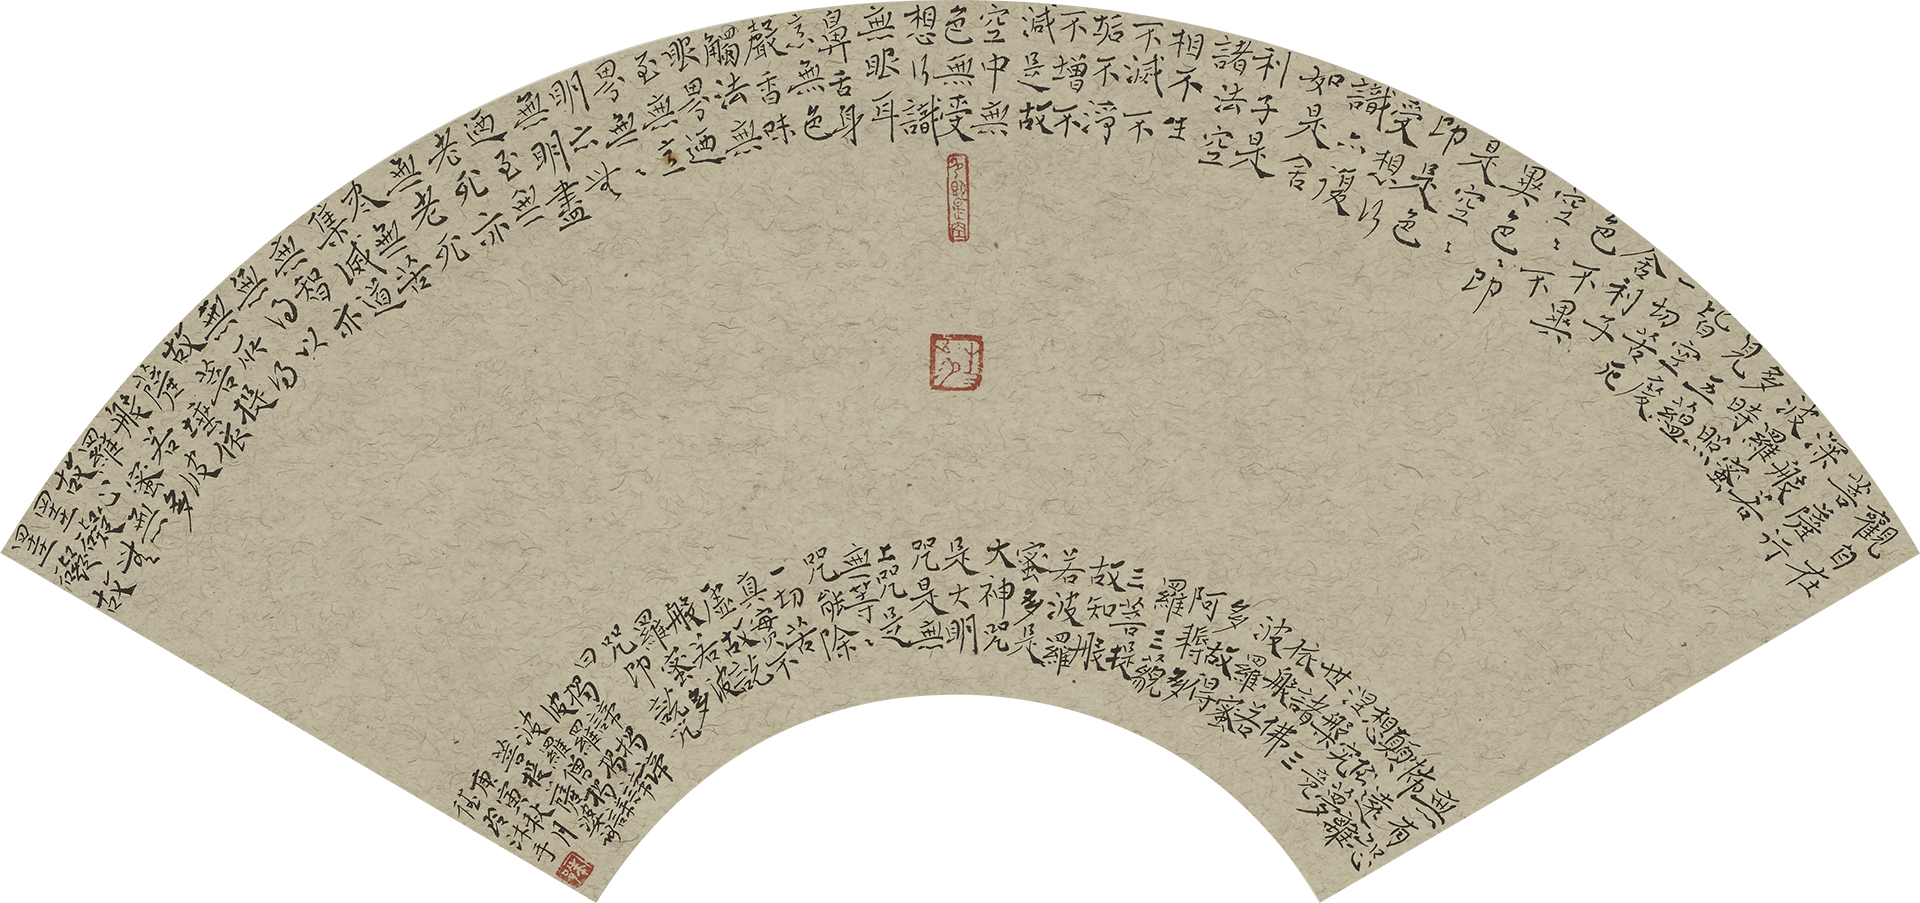 觀自在
菩薩行
深般若
波羅蜜
多時照
見五蘊
皆空度
一切苦厄
舍利子
色不異
空〻不
異色〻即
是空〻
即是色
受想行
識亦復
如是舍
利子是
諸法空
相不生
不滅不
垢不淨
不增不
減是故
空中無
色無受
想行識
無眼耳
鼻舌身
意無色
聲香味
觸法無
眼界迺
至無意
界無〻
明亦無
無明盡
迺至無
老死亦
無老死
盡無苦
集滅道
無智亦
無得以
無所得
故菩提
薩埵依
般若波
羅蜜多
故心無
罣礙無
罣礙故
無有恐
怖遠離
顛倒夢
想究竟
涅槃三
世諸佛
依般若
波羅蜜
多故得
阿耨多
羅三藐
三菩提
故知般
若波羅
蜜多是
大神咒
是大明
咒是無
上咒是
無等〻
咒能除
一切苦
真實不
虛故說
般若波
羅蜜多
咒即說咒
曰揭諦揭諦
波羅揭諦
波羅僧揭諦
菩提薩婆訶
庚寅秋月
玲沐手
色即是空